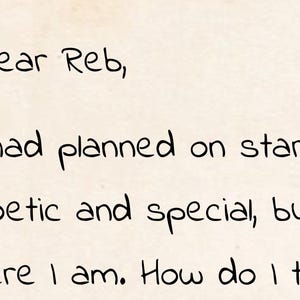 ear Reb,
had planned on star
oetic and special, bu
ere I am. How do I t